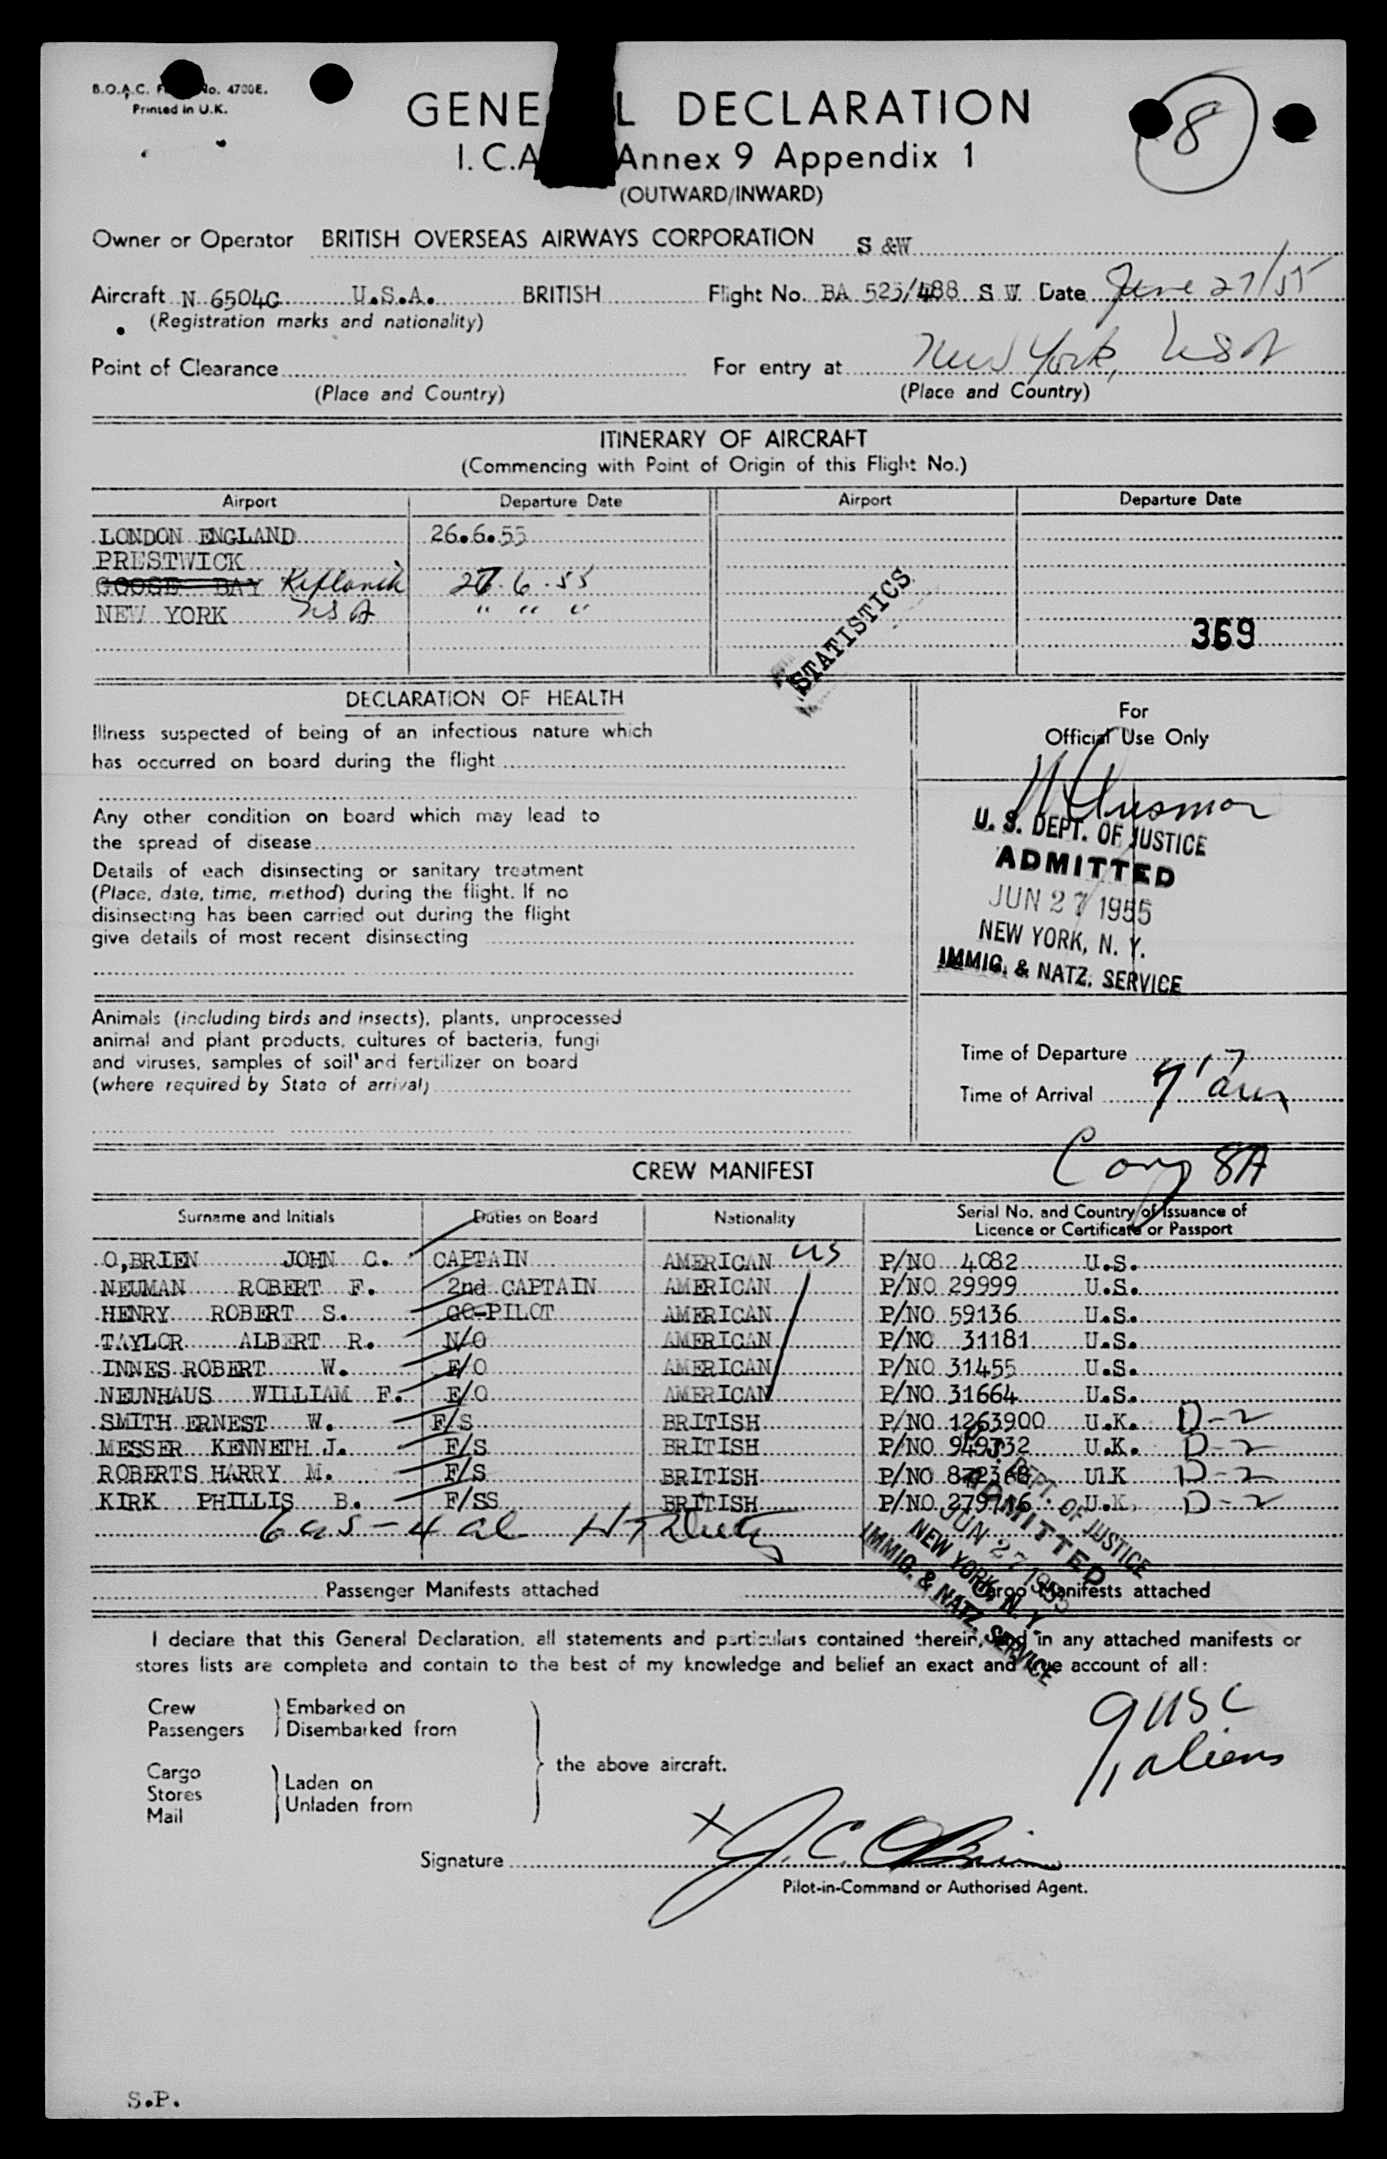 B.O.A.C. No. 4700E.
Printed in U.K.
GENE L DECLARATION
8
I.C.A Annex 9 Appendix 1
(OUTWARD/INWARD)
Owner or Operator BRITISH OVERSEAS AIRWAYS CORPORATION S &W
Aircraft N 6504C U.S.A. BRITISH Flight No. BA 525/488 S W Date June 27/55
(Registration marks and nationality)
Point of Clearance For entry at New York, USA
(Place and Country) (Place and Country)
ITINERARY OF AIRCRAFT
(Commencing with Point of Origin of this Flight No.)
Airport Departure Date Airport Departure Date
LONDON ENGLAND 26.6.55
PRESTWICK
GOOSE BAY Keflavik 27.6.55
NEW YORK USA " " "
STATISTICS
369
DECLARATION OF HEALTH
Illness suspected of being of an infectious nature which
has occurred on board during the flight
Any other condition on board which may lead to
the spread of disease
Details of each disinsecting or sanitary treatment
(Place, date, time, method) during the flight. If no
disinsecting has been carried out during the flight
give details of most recent disinsecting
For
Official Use Only
U. S. DEPT. OF JUSTICE
ADMITTED
JUN 27 1955
NEW YORK, N. Y.
IMMIG. & NATZ. SERVICE
Animals (including birds and insects), plants, unprocessed
animal and plant products, cultures of bacteria, fungi
and viruses, samples of soil and fertilizer on board
(where required by State of arrival)
Time of Departure
Time of Arrival
CREW MANIFEST
Surname and Initials Duties on Board Nationality Serial No. and Country of Issuance of
Licence or Certificate or Passport
O,BRIEN JOHN C. CAPTAIN AMERICAN US P/NO 4082 U.S.
NEUMAN ROBERT F. 2nd CAPTAIN AMERICAN P/NO 29999 U.S.
HENRY ROBERT S. CO-PILOT AMERICAN P/NO 59136 U.S.
TAYLOR ALBERT R. N/O AMERICAN P/NO 31181 U.S.
INNES ROBERT W. E/O AMERICAN P/NO 31455 U.S.
NEUNHAUS WILLIAM F. E/O AMERICAN P/NO 31664 U.S.
SMITH ERNEST W. F/S BRITISH P/NO 1263900 U.K. D-2
MESSER KENNETH J. F/S BRITISH P/NO 949332 U.K. D-2
ROBERTS HARRY M. F/S BRITISH P/NO U1K D-2
KIRK PHILLIS B. F/SS BRITISH P/NO U.K. D-2
U.S. DEPT. OF JUSTICE
ADMITTED
JUN 27 1955
NEW YORK, N. Y.
IMMIG. & NATZ. SERVICE
Passenger Manifests attached Cargo Manifests attached
I declare that this General Declaration, all statements and particulars contained therein, and in any attached manifests or
stores lists are complete and contain to the best of my knowledge and belief an exact and true account of all:
Crew Embarked on
Passengers Disembarked from
the above aircraft.
Cargo
Stores Laden on
Mail Unladen from
9 USC
11 aliens
Signature X J. C. O'Brien
Pilot-in-Command or Authorised Agent.
S.P.